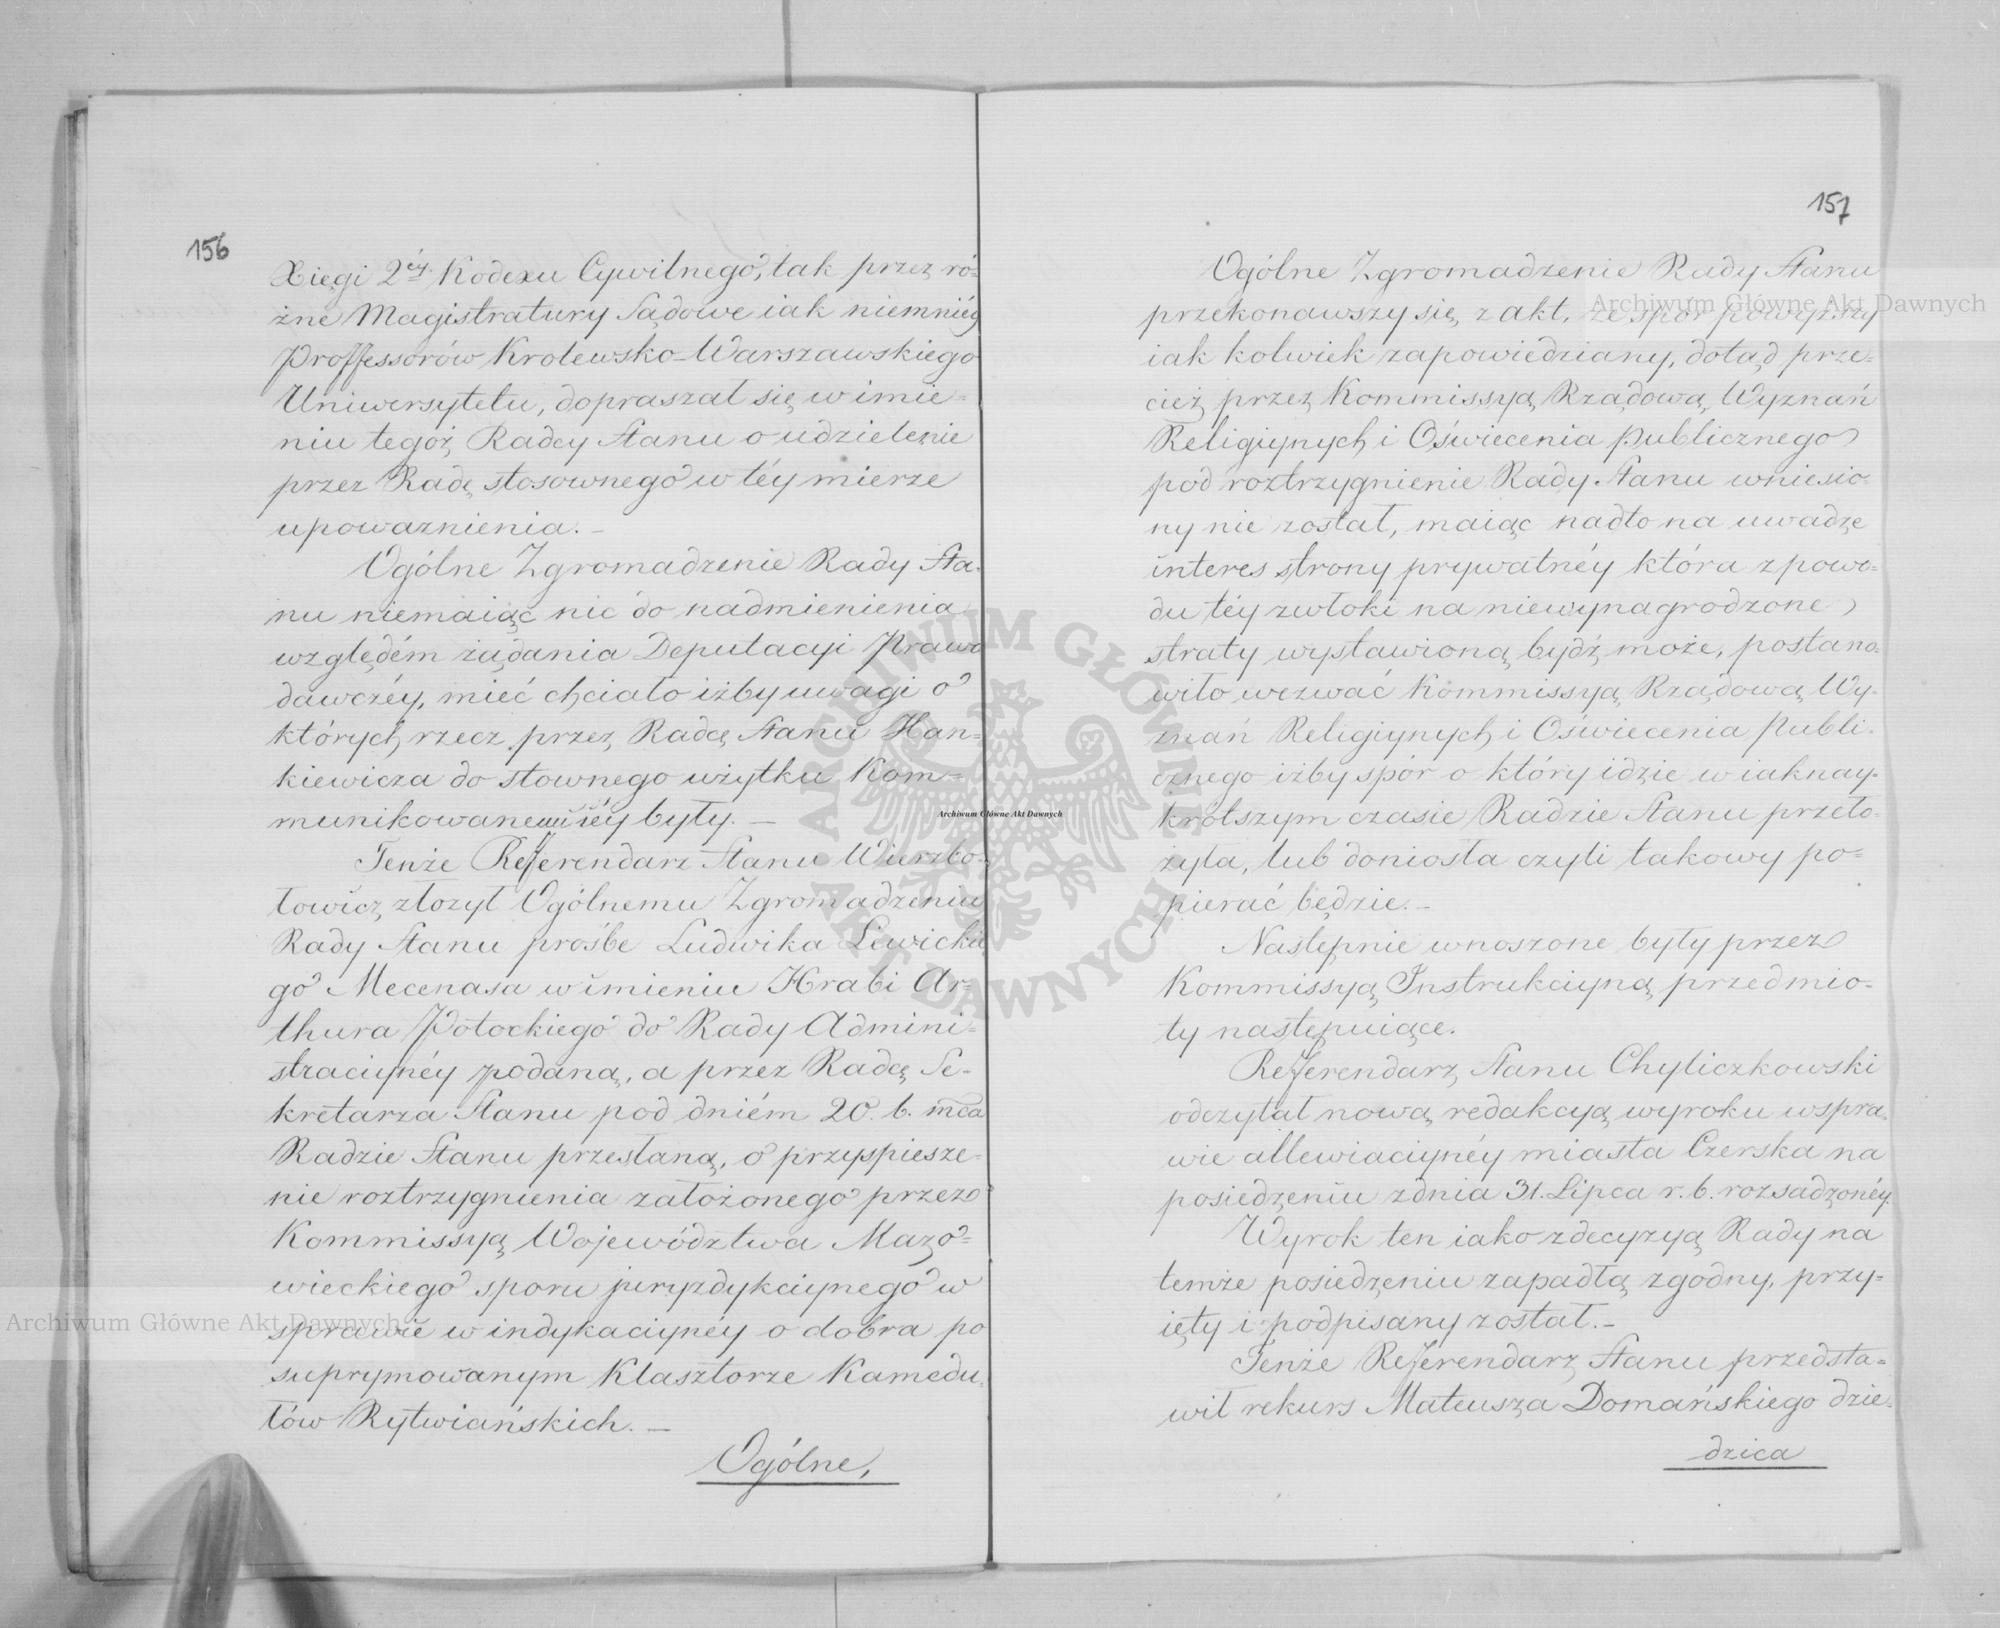 156
Xięgi 2éy Kodexu Cywilnego, tak przez ró-
żne Magistratury Sądowe iak niemniéy
Proffessorów Krolewsko-Warszawskiego
Uniwersytetu, dopraszał się w imie-
niu tegoż Radcy Stanu o udzielenie
przez Radę stosownego w téy mierze
upoważnienia. –
Ogólne Zgromadzenie Rady Sta-
nu niemaiąc nic do nadmienienia
względém żądania Deputacyi Prawo
dawczéy, mieć chciało iżby uwagi o
których rzecz przez Radcę Stanu Han-
kiewicza do stownego użytku Kom-
munikowane były. –
Tenże Referendarz Stanu Wierzbo-
łowicz złożył Ogólnemu Zgromadzeniu
Rady Stanu prośbe Ludwika Lewickie
go Mecenasa w imieniu Hrabi Ar-
thura Potockiego do Rady Admini-
straciynéy podaną, a przez Radcę Se-
kretarza Stanu pod dniém 20. b. mca
Radzie Stanu przesłaną, o przyspiesze-
nie roztrzygnienia założonego przez
Kommissyą Województwa Mazo-
wieckiego sporu juryzdykciynego w
sprawie windykaciynéy o dobra po
suprymowanym Klasztorze Kamedu-
łów Rytwiańskich. –
Ogólne,
157
Ogólne Zgromadzenie Rady Stanu
przekonawszy się z akt, że spór powyższy
iak kolwiek zapowiedziany, dotąd prze-
cież przez Kommissyą Rządową Wyznań
Religiynych i Oświecenia Publicznego
pod roztrzygnienie Rady Stanu wniesio-
ny nie został, maiąc nadto na uwadze
interes strony prywatnéy która z powo-
du téy zwłoki na niewynagrodzone
straty wystawioną bydź może, postano-
wiło wezwać Kommissyą Rządową Wy-
znań Religiynych i Oświecenia Publi-
cznego iżby spór o który idzie w iaknay-
krótszym czasie Radzie Stanu przeło-
żyła, lub doniosła czyli takowy po-
pierać będzie. –
Następnie wnoszone były przez
Kommissyą Instrukciyną przedmio-
ty następuiące.
Referendarz Stanu Chyliczkowski
odczytał nową redakcyą wyroku w spra-
wie allewiaciynéy miasta Czerska na
posiedzeniu z dnia 31. Lipca r. b. rozsądzonéy.
Wyrok ten iako z decyzyą Rady na
temże posiedzeniu zapadłą zgodny, przy-
ięty i podpisany został. –
Tenże Referendarz Stanu przedsta-
wił rekurs Mateusza Domańskiego dzie-
dzica
Archiwum Główne Akt Dawnych
Archiwum Główne Akt Dawnych
Archiwum Główne Akt Dawnych
ARCHIWUM GŁÓWNE AKT DAWNYCH